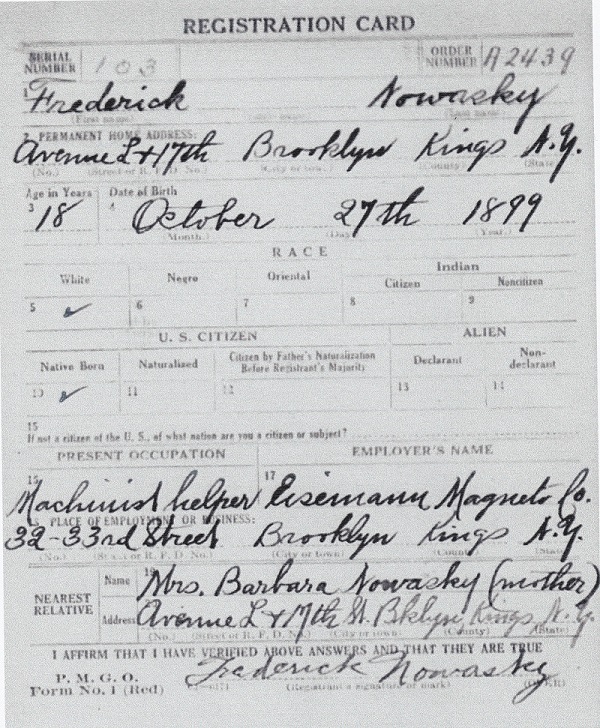 REGISTRATION CARD
SERIAL NUMBER 103 ORDER NUMBER A2439
1 Frederick Nowasky
(First name) (Last name)
2 PERMANENT HOME ADDRESS:
Avenue L & 17th Brooklyn Kings N.Y.
(No.) (Street or R. F. D. No.) (City or town) (County) (State)
Age in Years Date of Birth
3 18 4 October 27th 1899
(Month.) (Day.) (Year.)
RACE
White Negro Oriental Indian
Citizen Noncitizen
5 ✓ 6 7 8 9
U. S. CITIZEN ALIEN
Native Born Naturalized Citizen by Father's Naturalization Before Registrant's Majority Declarant Non-declarant
10 ✓ 11 12 13 14
15
If not a citizen of the U. S., of what nation are you a citizen or subject?
PRESENT OCCUPATION EMPLOYER'S NAME
16 17
Machinist helper Eisemann Magneto Co.
18 PLACE OF EMPLOYMENT OR BUSINESS:
32-33rd Street Brooklyn Kings N.Y.
(No.) (Street or R. F. D. No.) (City or town) (County) (State)
NEAREST RELATIVE Name 19 Mrs. Barbara Nowasky (mother)
Address Avenue L & 17th St. Bklyn, Kings, N.Y.
(No.) (Street or R. F. D. No.) (City or town) (County) (State)
I AFFIRM THAT I HAVE VERIFIED ABOVE ANSWERS AND THAT THEY ARE TRUE
P. M. G. O.
Form No. 1 (Red) Frederick Nowasky
(Registrant's signature or mark) (OVER)